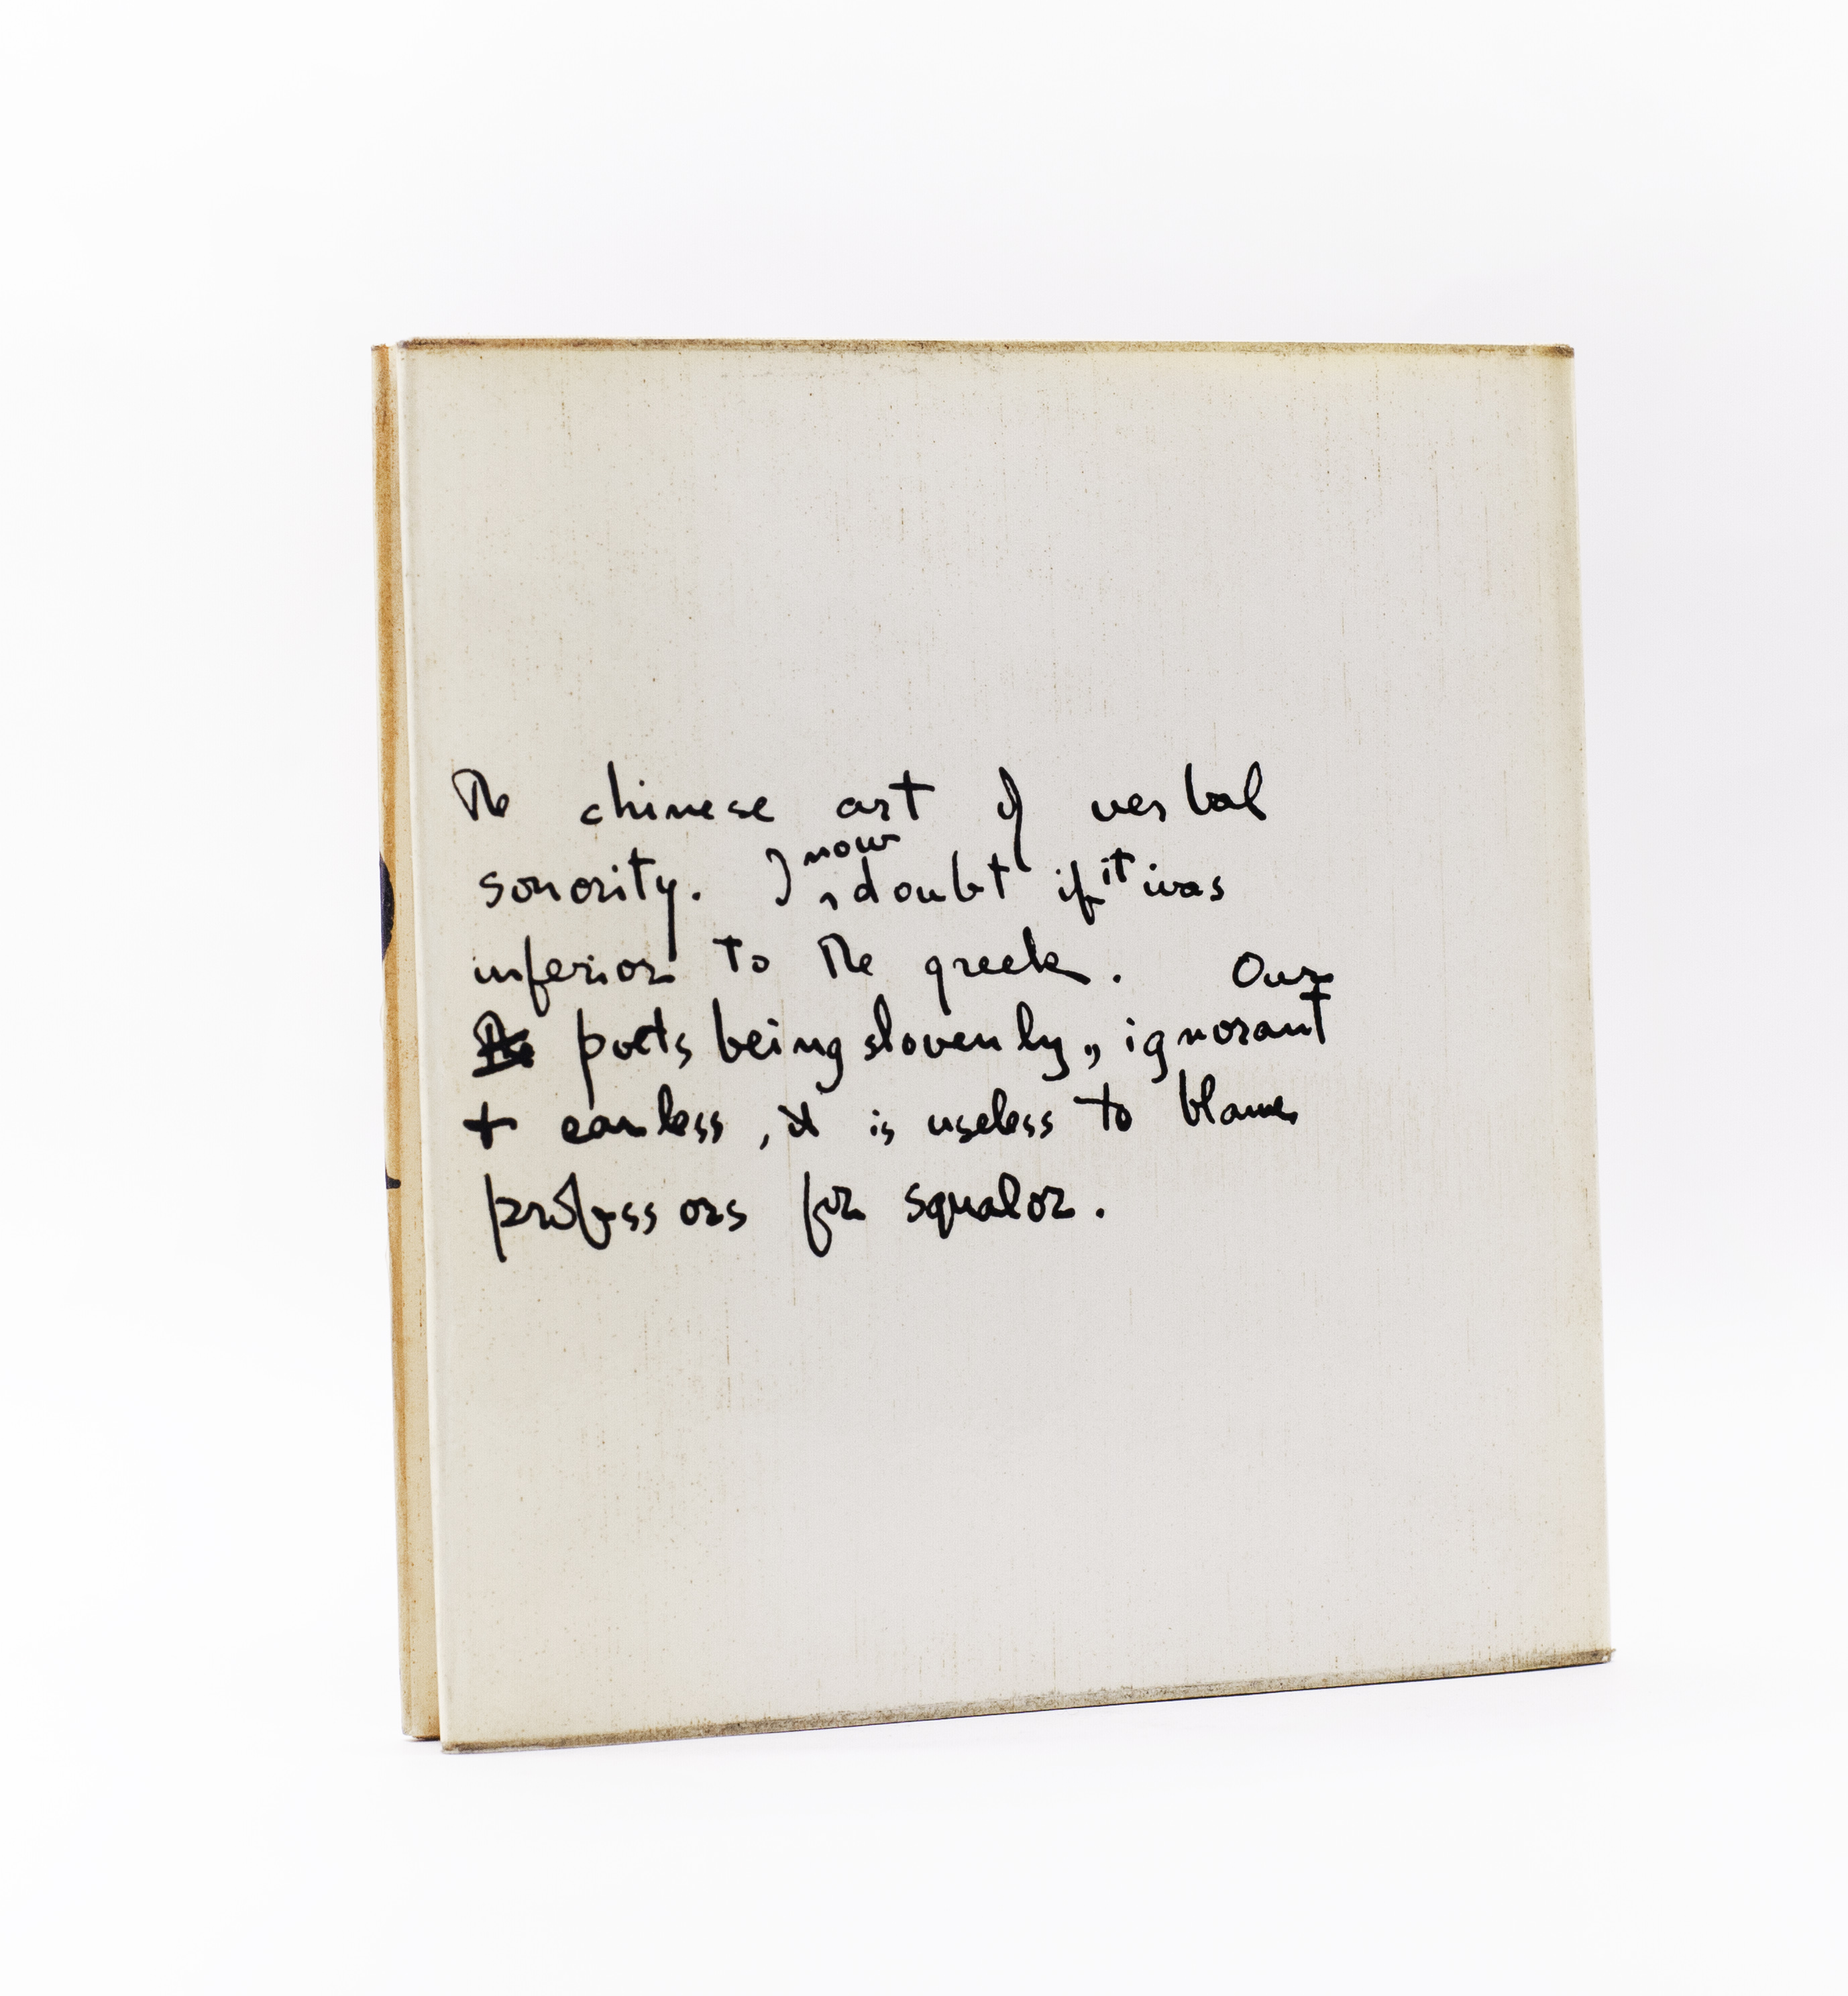 The chinese art of verbal
sonority. I now doubt if it was
inferior to the greek. Our
poets being slovenly, ignorant
+ earless, it is useless to blame
professors for squalor.